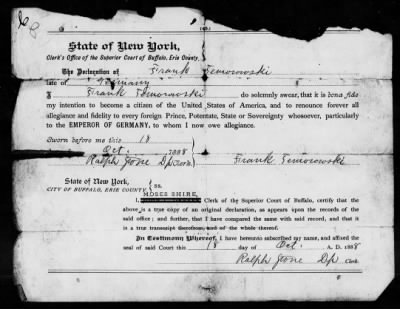 State of New York,
Clerk's Office of the Superior Court of Buffalo, Erie County.
The Declaration of Frank Temorowski
late of Germany
I Frank Temorowski do solemnly swear, that it is bona fide
my intention to become a citizen of the United States of America, and to renounce forever all
allegiance and fidelity to every foreign Prince, Potentate, State or Sovereignty whosoever, particularly
to the EMPEROR OF GERMANY, to whom I now owe allegiance.
Sworn before me this 18
Oct. 1888
Ralph Dp Clerk Frank Temorowski
State of New York,
CITY OF BUFFALO, ERIE COUNTY ss.
MOSES SHIRE,
I, Clerk of the Superior Court of Buffalo, certify that the
above is a true copy of an original declaration, as appears upon the records of the
said office; and further, that I have compared the same with said record, and that it
is a true transcript therefrom, and of the whole thereof.
In Testimony Whereof, I have hereunto subscribed my name, and affixed the
seal of said Court this 18 day of Oct. A. D. 1888
Ralph Dp Clerk